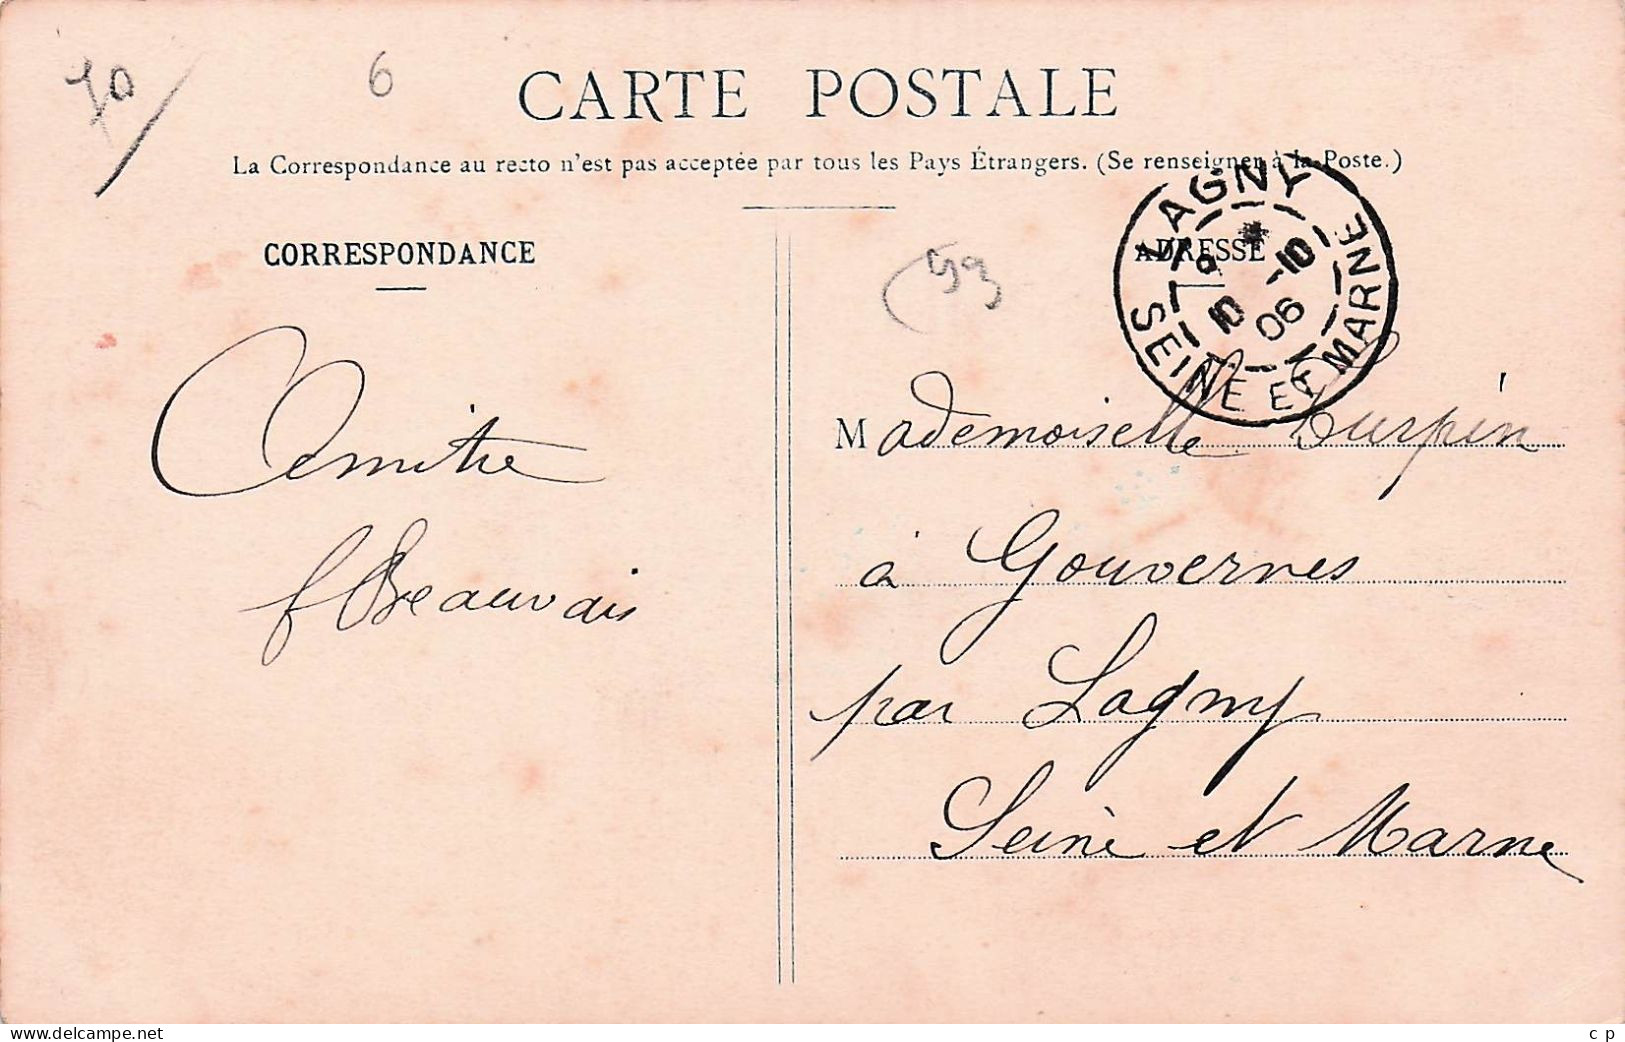 70
6
CARTE POSTALE
La Correspondance au recto n'est pas acceptée par tous les Pays Étrangers. (Se renseigner à la Poste.)
CORRESPONDANCE
ADRESSE
LAGNY
SEINE ET MARNE
10 -10
06
93
Amitié
f Beauvais
Mademoiselle Turpin
à Gouvernes
par Lagny
Seine et Marne
www.delcampe.net
c p